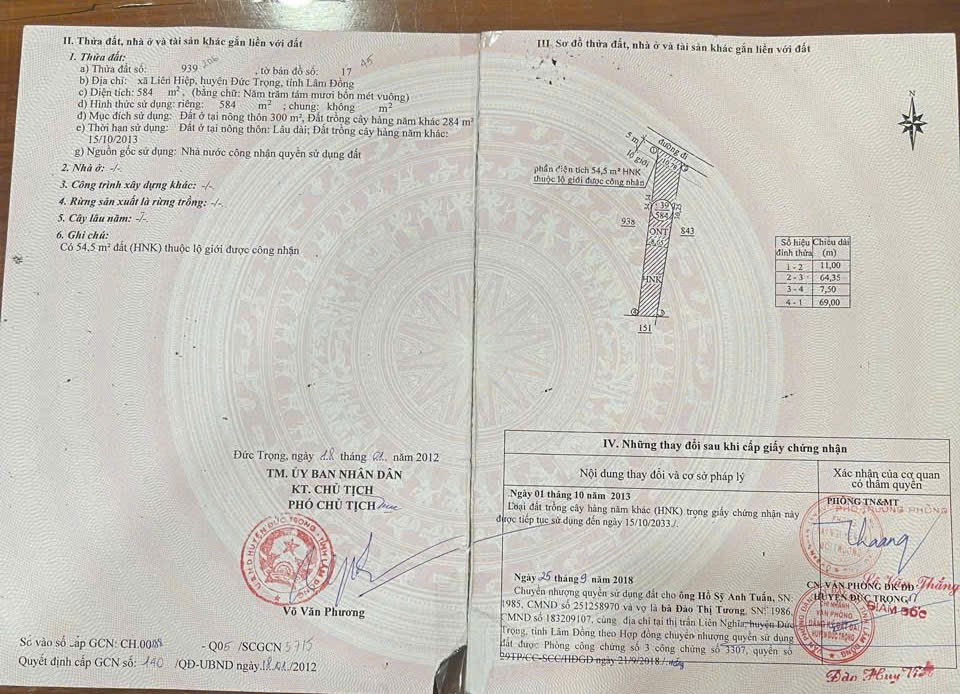 II. Thửa đất, nhà ở và tài sản khác gắn liền với đất
1. Thửa đất:
a) Thửa đất số: 939 206, tờ bản đồ số: 17 45
b) Địa chỉ: xã Liên Hiệp, huyện Đức Trọng, tỉnh Lâm Đồng
c) Diện tích: 584 m², (bằng chữ: Năm trăm tám mươi bốn mét vuông)
d) Hình thức sử dụng: riêng: 584 m²; chung: không m²
đ) Mục đích sử dụng: Đất ở tại nông thôn 300 m², Đất trồng cây hàng năm khác 284 m²
e) Thời hạn sử dụng: Đất ở tại nông thôn: Lâu dài; Đất trồng cây hàng năm khác:
15/10/2013
g) Nguồn gốc sử dụng: Nhà nước công nhận quyền sử dụng đất
2. Nhà ở: -/-
3. Công trình xây dựng khác: -/-
4. Rừng sản xuất là rừng trồng: -/-
5. Cây lâu năm: -/-
6. Ghi chú:
Có 54,5 m² đất (HNK) thuộc lộ giới được công nhận
Đức Trọng, ngày 18 tháng 01 năm 2012
TM. ỦY BAN NHÂN DÂN
KT. CHỦ TỊCH
PHÓ CHỦ TỊCH
U.B.N.D HUYỆN ĐỨC TRỌNG - TỈNH LÂM ĐỒNG
Võ Văn Phương
Số vào sổ cấp GCN: CH.00 - Q05 /SCGCN 5715
Quyết định cấp GCN số: 140 /QĐ-UBND ngày 18.01./2012
III. Sơ đồ thửa đất, nhà ở và tài sản khác gắn liền với đất
N
đường đi
5 m
lộ giới
10,78
phần diện tích 54,5 m² HNK
thuộc lộ giới được công nhận
938
584
ONT
843
HNK
151
Số hiệu đỉnh thửa Chiều dài (m)
1 - 2 11,00
2 - 3 64,35
3 - 4 7,50
4 - 1 69,00
IV. Những thay đổi sau khi cấp giấy chứng nhận
Nội dung thay đổi và cơ sở pháp lý
Xác nhận của cơ quan
có thẩm quyền
Ngày 01 tháng 10 năm 2013
Loại đất trồng cây hàng năm khác (HNK) trong giấy chứng nhận này
được tiếp tục sử dụng đến ngày 15/10/2033./.
PHÒNG TN&MT
PHÓ TRƯỞNG PHÒNG
Lê Văn Thắng
Ngày 25 tháng 9 năm 2018
Chuyển nhượng quyền sử dụng đất cho ông Hồ Sỹ Anh Tuấn, SN:
1985, CMND số 251258970 và vợ là bà Đào Thị Tương, SN: 1986,
CMND số 183209107, cùng địa chỉ tại thị trấn Liên Nghĩa, huyện Đức
Trọng, tỉnh Lâm Đồng theo Hợp đồng chuyển nhượng quyền sử dụng
đất được Phòng công chứng số 3 công chứng số 3307, quyển số
29TP/CC-SCC/HĐGD ngày 21/9/2018./.
CN. VĂN PHÒNG ĐK ĐĐ
HUYỆN ĐỨC TRỌNG
GIÁM ĐỐC
CHI NHÁNH
VĂN PHÒNG
ĐĂNG KÝ ĐẤT ĐAI
HUYỆN ĐỨC TRỌNG